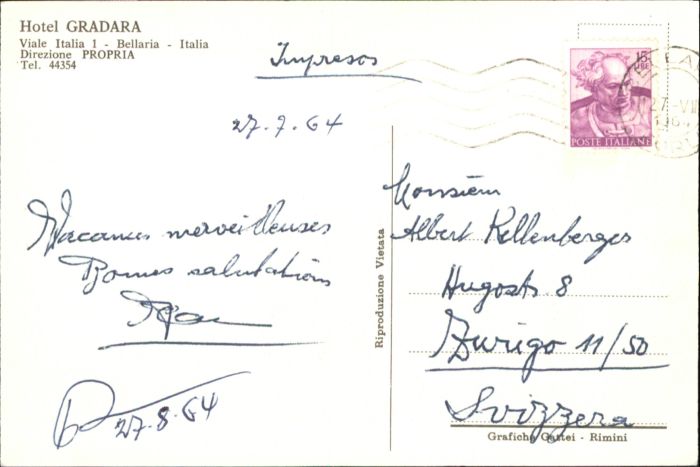 Hotel GRADARA
Viale Italia 1 - Bellaria - Italia
Direzione PROPRIA
Tel. 44354
Impresos
15 LIRE
POSTE ITALIANE
27.7.64
Vacances merveilleuses
Bonnes salutations
27.8.64
Riproduzione Vietata
Monsieur
Albert Kellenberger
Hugostr 8
Zurigo 11/50
Svizzera
Grafiche Gattei - Rimini